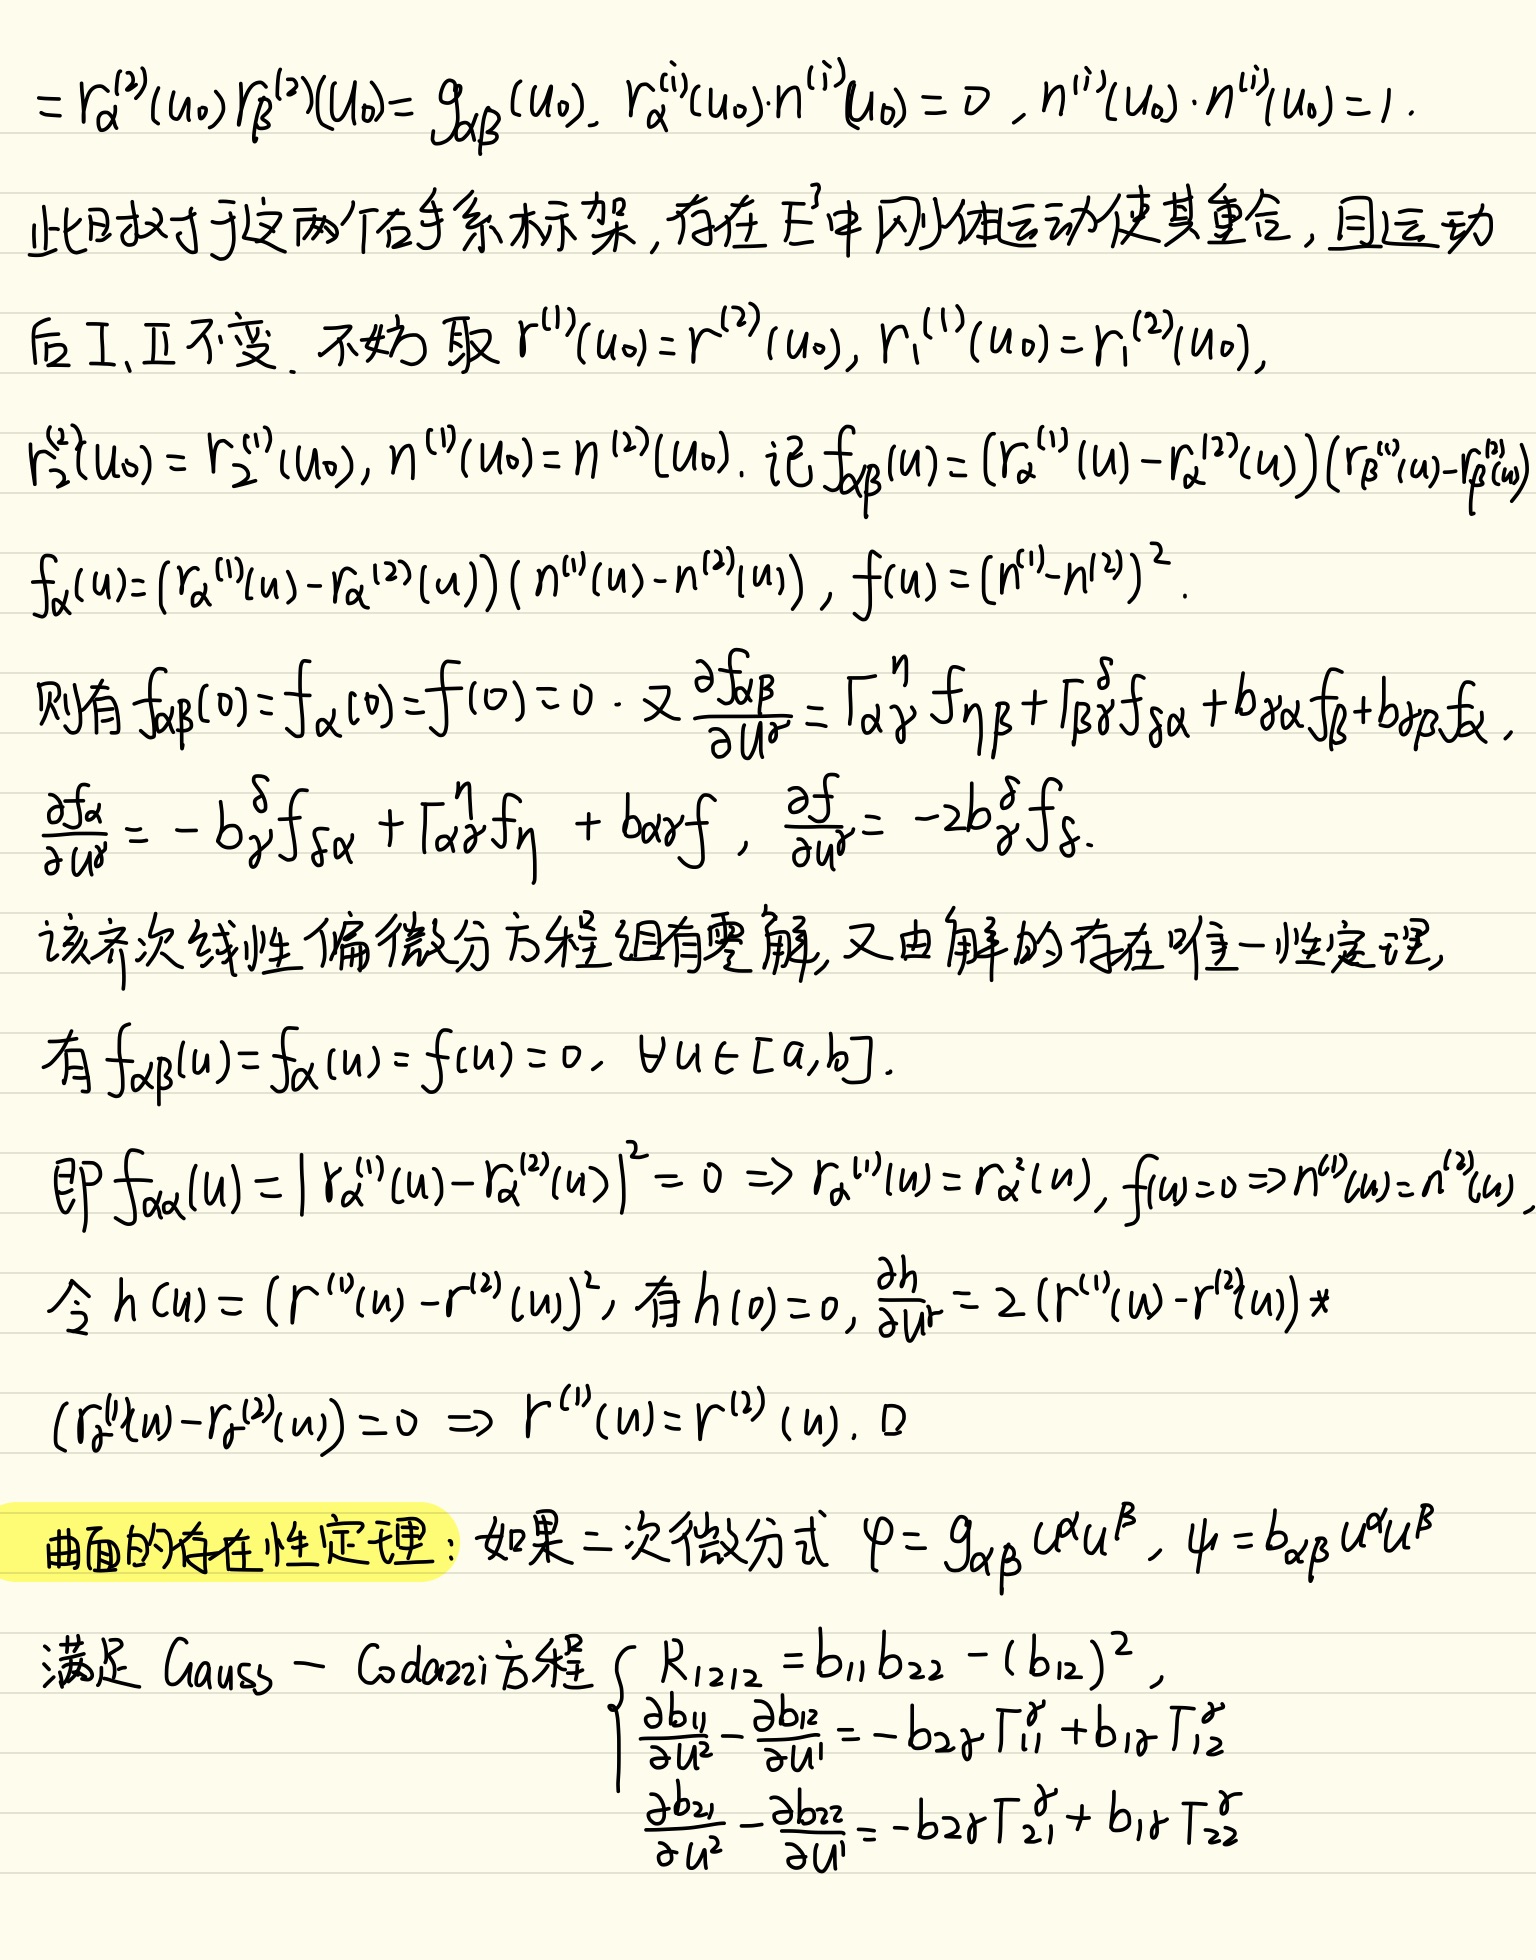 = r_α^(2)(u₀) r_β^(2)(u₀) = g_αβ(u₀). r_α^(i)(u₀)·n^(i)(u₀) = 0, n^(i)(u₀)·n^(i)(u₀) = 1.
此时对于这两个右手系标架, 存在 E³中刚体运动使其重合, 且运动
后 I、II 不变. 不妨取 r^(1)(u₀) = r^(2)(u₀), r₁^(1)(u₀) = r₁^(2)(u₀),
r₂^(2)(u₀) = r₂^(1)(u₀), n^(1)(u₀) = n^(2)(u₀). 记 f_αβ(u) = (r_α^(1)(u) - r_α^(2)(u))(r_β^(1)(u) - r_β^(2)(u))
f_α(u) = (r_α^(1)(u) - r_α^(2)(u))(n^(1)(u) - n^(2)(u)), f(u) = (n^(1) - n^(2))².
则有 f_αβ(0) = f_α(0) = f(0) = 0. 又 ∂f_αβ/∂u^γ = Γ_αγ^η f_ηβ + Γ_βγ^δ f_δα + b_γα f_β + b_γβ f_α,
∂f_α/∂u^γ = -b_γ^δ f_δα + Γ_αγ^η f_η + b_αγ f, ∂f/∂u^γ = -2b_γ^δ f_δ.
该齐次线性偏微分方程组有零解, 又由解的存在唯一性定理,
有 f_αβ(u) = f_α(u) = f(u) = 0, ∀u∈[a,b].
即 f_αα(u) = |r_α^(1)(u) - r_α^(2)(u)|² = 0 ⇒ r_α^(1)(u) = r_α^2(u), f(u)=0 ⇒ n^(1)(u) = n^(2)(u),
令 h(u) = (r^(1)(u) - r^(2)(u))², 有 h(0) = 0, ∂h/∂u^r = 2(r^(1)(u) - r^(2)(u)) *
(r_γ^(1)(u) - r_γ^(2)(u)) = 0 ⇒ r^(1)(u) = r^(2)(u). □
曲面的存在性定理: 如果二次微分式 φ = g_αβ u^α u^β, ψ = b_αβ u^α u^β
满足 Gauss - Codazzi方程 { R₁₂₁₂ = b₁₁b₂₂ - (b₁₂)²,
∂b₁₁/∂u² - ∂b₁₂/∂u¹ = -b_2γ Γ₁₁^γ + b_1γ Γ₁₂^γ
∂b₂₁/∂u² - ∂b₂₂/∂u¹ = -b_2γ Γ₂₁^γ + b_1γ Γ₂₂^γ